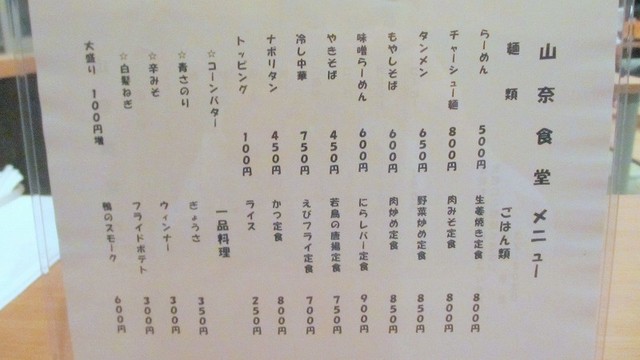 山奈食堂 メニュー
麺類
らーめん 500円
チャーシュー麺 800円
タンメン 650円
もやしそば 600円
味噌らーめん 600円
やきそば 450円
冷し中華 750円
ナポリタン 450円
トッピング 100円
☆コーンバター
☆青さのり
☆辛みそ
☆白髪ねぎ
大盛り 100円増
ごはん類
生姜焼き定食 800円
肉みそ定食 800円
野菜炒め定食 850円
肉炒め定食 850円
にらレバー定食 900円
若鳥の唐揚定食 750円
えびフライ定食 700円
かつ定食 800円
ライス 250円
一品料理
ぎょうさ 350円
ウィンナー 300円
フライドポテト 300円
鴨のスモーク 600円